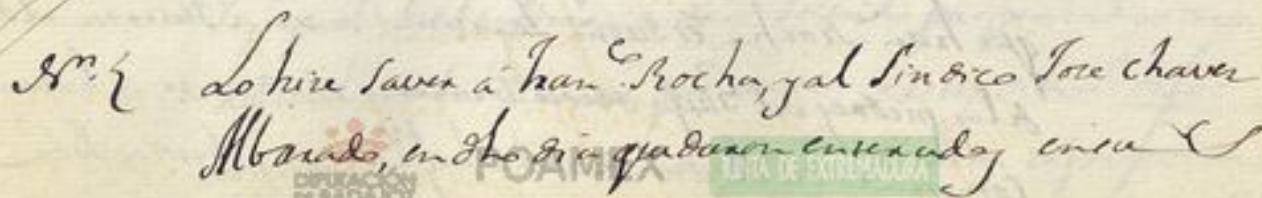 Nn. } Lo hice saver a Franco. Rocha, y al Sindico Jose Chaves
Albarado, en dho dia quedaron enterados
DIPUTACIÓN DE BADAJOZ FOAMEX JUNTA DE EXTREMADURA